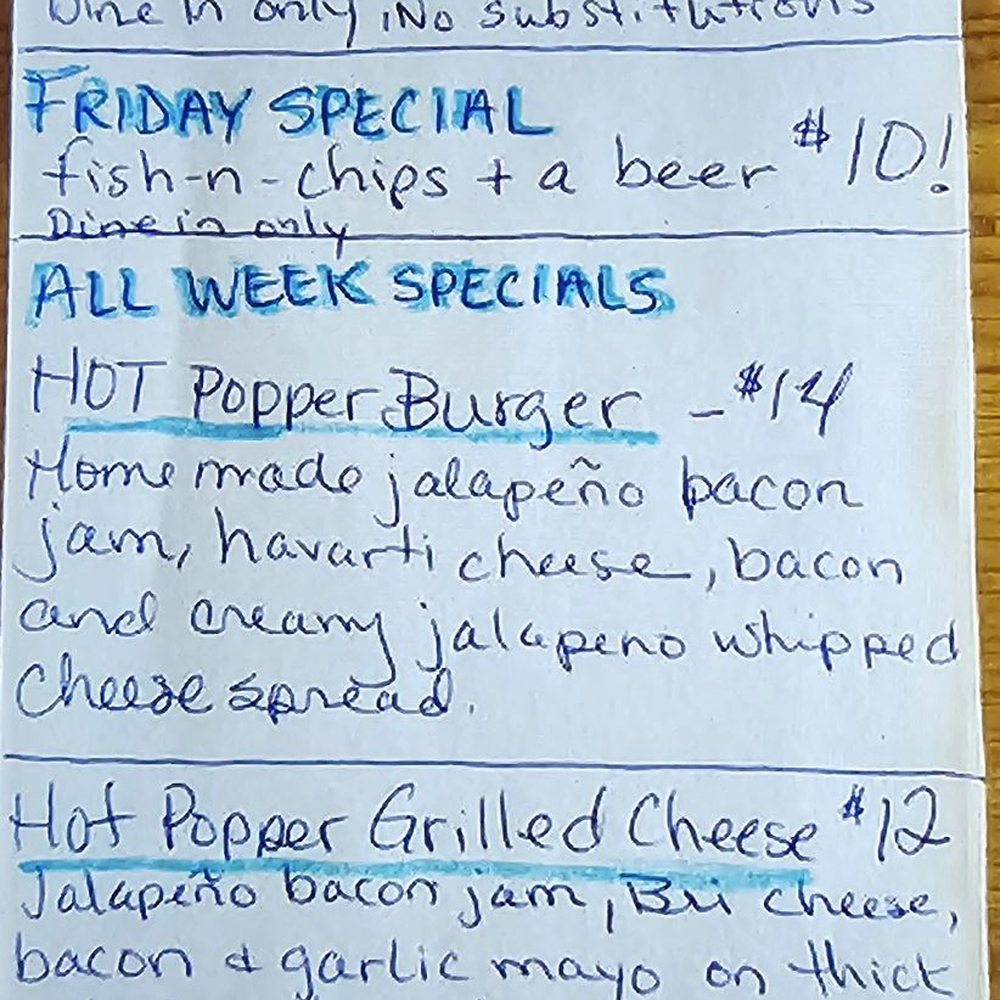 Dine in only, No substitutions
FRIDAY SPECIAL
fish-n-chips + a beer $10!
Dine in only
ALL WEEK SPECIALS
HOT Popper Burger - $14
Homemade jalapeño bacon
jam, havarti cheese, bacon
and creamy jalapeno whipped
cheese spread.
Hot Popper Grilled Cheese $12
Jalapeño bacon jam, Bri cheese,
bacon & garlic mayo on thick